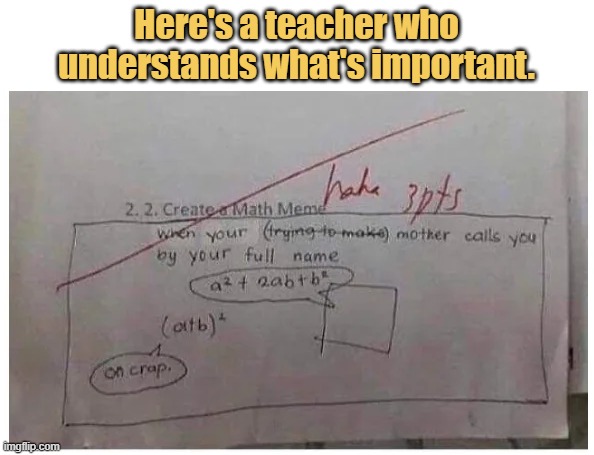 Here's a teacher who
understands what's important.
haha 3pts
2. 2. Create a Math Meme
when your (trying to make) mother calls you
by your full name
a² + 2ab+b²
(a+b)²
oh crap.
imgflip.com